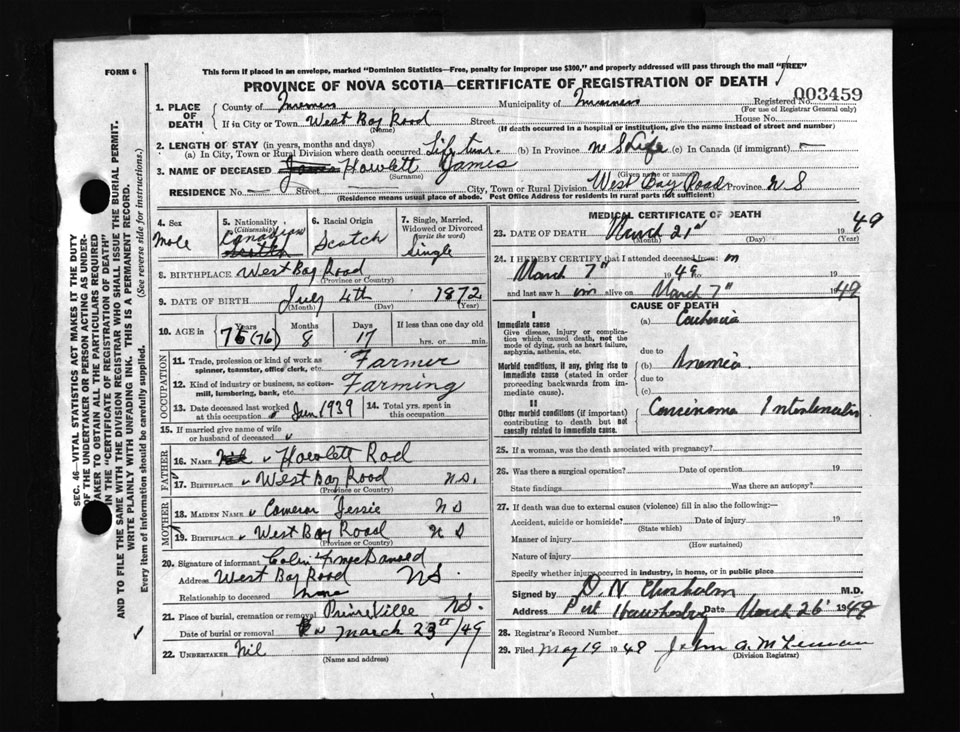 FORM 6
This form if placed in an envelope, marked "Dominion Statistics—Free, penalty for improper use $300," and properly addressed will pass through the mail "FREE"
PROVINCE OF NOVA SCOTIA—CERTIFICATE OF REGISTRATION OF DEATH
003459
SEC. 46—VITAL STATISTICS ACT MAKES IT THE DUTY
OF THE UNDERTAKER OR PERSON ACTING AS UNDER-
TAKER TO OBTAIN ALL THE PARTICULARS REQUIRED
IN THE "CERTIFICATE OF REGISTRATION OF DEATH"
AND TO FILE THE SAME WITH THE DIVISION REGISTRAR WHO SHALL ISSUE THE BURIAL PERMIT.
WRITE PLAINLY WITH UNFADING INK. THIS IS A PERMANENT RECORD.
Every item of information should be carefully supplied. (See reverse side for instructions.)
1. PLACE OF DEATH
County of Inverness Municipality of Inverness Registered No.
(For use of Registrar General only)
If in City or Town West Bay Road Street House No.
(Name) (If death occurred in a hospital or institution, give the name instead of street and number)
2. LENGTH OF STAY (in years, months and days)
(a) In City, Town or Rural Division where death occurred Life time. (b) In Province N S Life (c) In Canada (if immigrant) —
3. NAME OF DECEASED James Howlett James
(Surname) (Given name or names)
RESIDENCE No. — Street — City, Town or Rural Division West Bay Road Province N S
(Residence means usual place of abode. Post Office Address for residents in rural parts not sufficient)
4. Sex
Male
5. Nationality (Citizenship)
Canadian
6. Racial Origin
Scotch
7. Single, Married, Widowed or Divorced (write the word)
Single
8. BIRTHPLACE West Bay Road
(Province or Country)
9. DATE OF BIRTH July 4th 1872
(Month) (Day) (Year)
10. AGE in Years Months Days If less than one day old
76 (76) 8 17 hrs. or min.
OCCUPATION
11. Trade, profession or kind of work as spinner, teamster, office clerk, etc. Farmer
12. Kind of industry or business, as cotton-mill, lumbering, bank, etc. Farming
13. Date deceased last worked at this occupation Jun 1939 14. Total yrs. spent in this occupation
15. If married give name of wife or husband of deceased
FATHER
16. Name Howlett Rod
17. Birthplace West Bay Road NS.
(Province or Country)
MOTHER
18. Maiden Name Cameron Jessie N S
19. Birthplace West Bay Road N S
(Province or Country)
20. Signature of informant Colin F McDonald
Address West Bay Road NS.
Relationship to deceased None
21. Place of burial, cremation or removal PrinceVille NS.
Date of burial or removal March 23th/49
22. UNDERTAKER Nil
(Name and address)
MEDICAL CERTIFICATE OF DEATH
23. DATE OF DEATH March 21st 1949
(Month) (Day) (Year)
24. I HEREBY CERTIFY that I attended deceased from: m
March 7" 1949 to 19
and last saw h im alive on March 7" 1949
CAUSE OF DEATH
I
Immediate cause
Give disease, injury or complication which caused death, not the mode of dying, such as heart failure, asphyxia, asthenia, etc.
(a) Cachexia
due to
Morbid conditions, if any, giving rise to immediate cause (stated in order proceeding backwards from immediate cause).
(b) Anemia
due to
(c)
II
Other morbid conditions (if important) contributing to death but not causally related to immediate cause.
Carcinoma
25. If a woman, was the death associated with pregnancy?
26. Was there a surgical operation? Date of operation 19
State findings Was there an autopsy?
27. If death was due to external causes (violence) fill in also the following:—
Accident, suicide or homicide? Date of injury 19
(State which)
Manner of injury
(How sustained)
Nature of injury
Specify whether injury occurred in industry, in home, or in public place
Signed by D. N Chisholm M.D.
Address Port Hawkesbury Date March 26 1949
28. Registrar's Record Number
29. Filed May 19 1948 John A. McLennan
(Division Registrar)